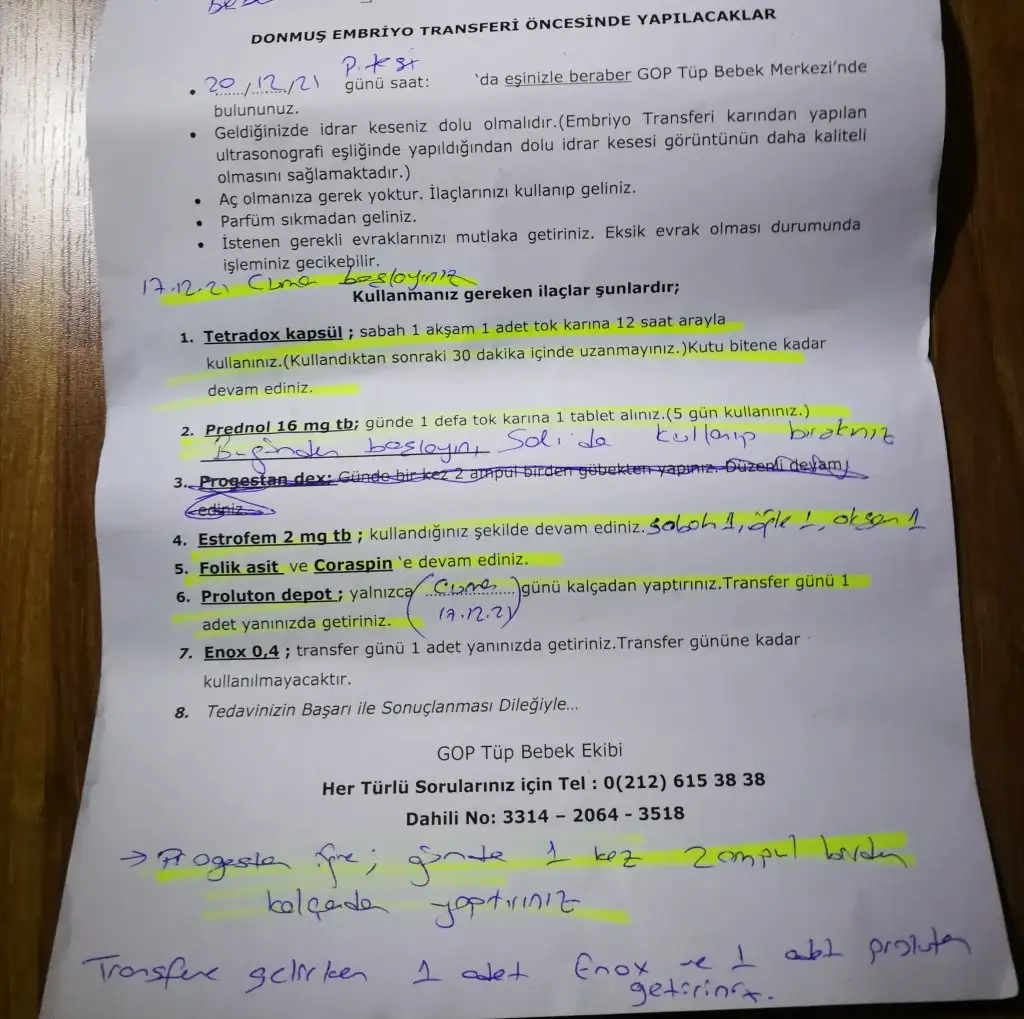 DONMUŞ EMBRİYO TRANSFERİ ÖNCESİNDE YAPILACAKLAR
P.tesi
• 20/12/21 günü saat: 'da eşinizle beraber GOP Tüp Bebek Merkezi'nde
bulununuz.
• Geldiğinizde idrar keseniz dolu olmalıdır.(Embriyo Transferi karından yapılan
ultrasonografi eşliğinde yapıldığından dolu idrar kesesi görüntünün daha kaliteli
olmasını sağlamaktadır.)
• Aç olmanıza gerek yoktur. İlaçlarınızı kullanıp geliniz.
• Parfüm sıkmadan geliniz.
• İstenen gerekli evraklarınızı mutlaka getiriniz. Eksik evrak olması durumunda
işleminiz gecikebilir.
17.12.21 Cuma başlayınız
Kullanmanız gereken ilaçlar şunlardır;
1. Tetradox kapsül ; sabah 1 akşam 1 adet tok karına 12 saat arayla
kullanınız.(Kullandıktan sonraki 30 dakika içinde uzanmayınız.)Kutu bitene kadar
devam ediniz.
2. Prednol 16 mg tb; günde 1 defa tok karına 1 tablet alınız.(5 gün kullanınız.)
Bugünden başlayın, Salı da kullanıp bırakınız
3. Progestan dex; Günde bir kez 2 ampul birden göbekten yapınız. Düzenli devam
ediniz.
4. Estrofem 2 mg tb ; kullandığınız şekilde devam ediniz. Sabah 1, öğle 1, akşam 1
5. Folik asit ve Coraspin 'e devam ediniz.
6. Proluton depot ; yalnızca (Cuma) günü kalçadan yaptırınız.Transfer günü 1
17.12.21
adet yanınızda getiriniz.
7. Enox 0,4 ; transfer günü 1 adet yanınızda getiriniz.Transfer gününe kadar
kullanılmayacaktır.
8. Tedavinizin Başarı ile Sonuçlanması Dileğiyle...
GOP Tüp Bebek Ekibi
Her Türlü Sorularınız için Tel : 0(212) 615 38 38
Dahili No: 3314 – 2064 - 3518
→ Progestan iğne; günde 1 kez 2 ampul birden
kalçadan yaptırınız
Transfere gelirken 1 adet Enox ve 1 adet proluton
getiriniz.